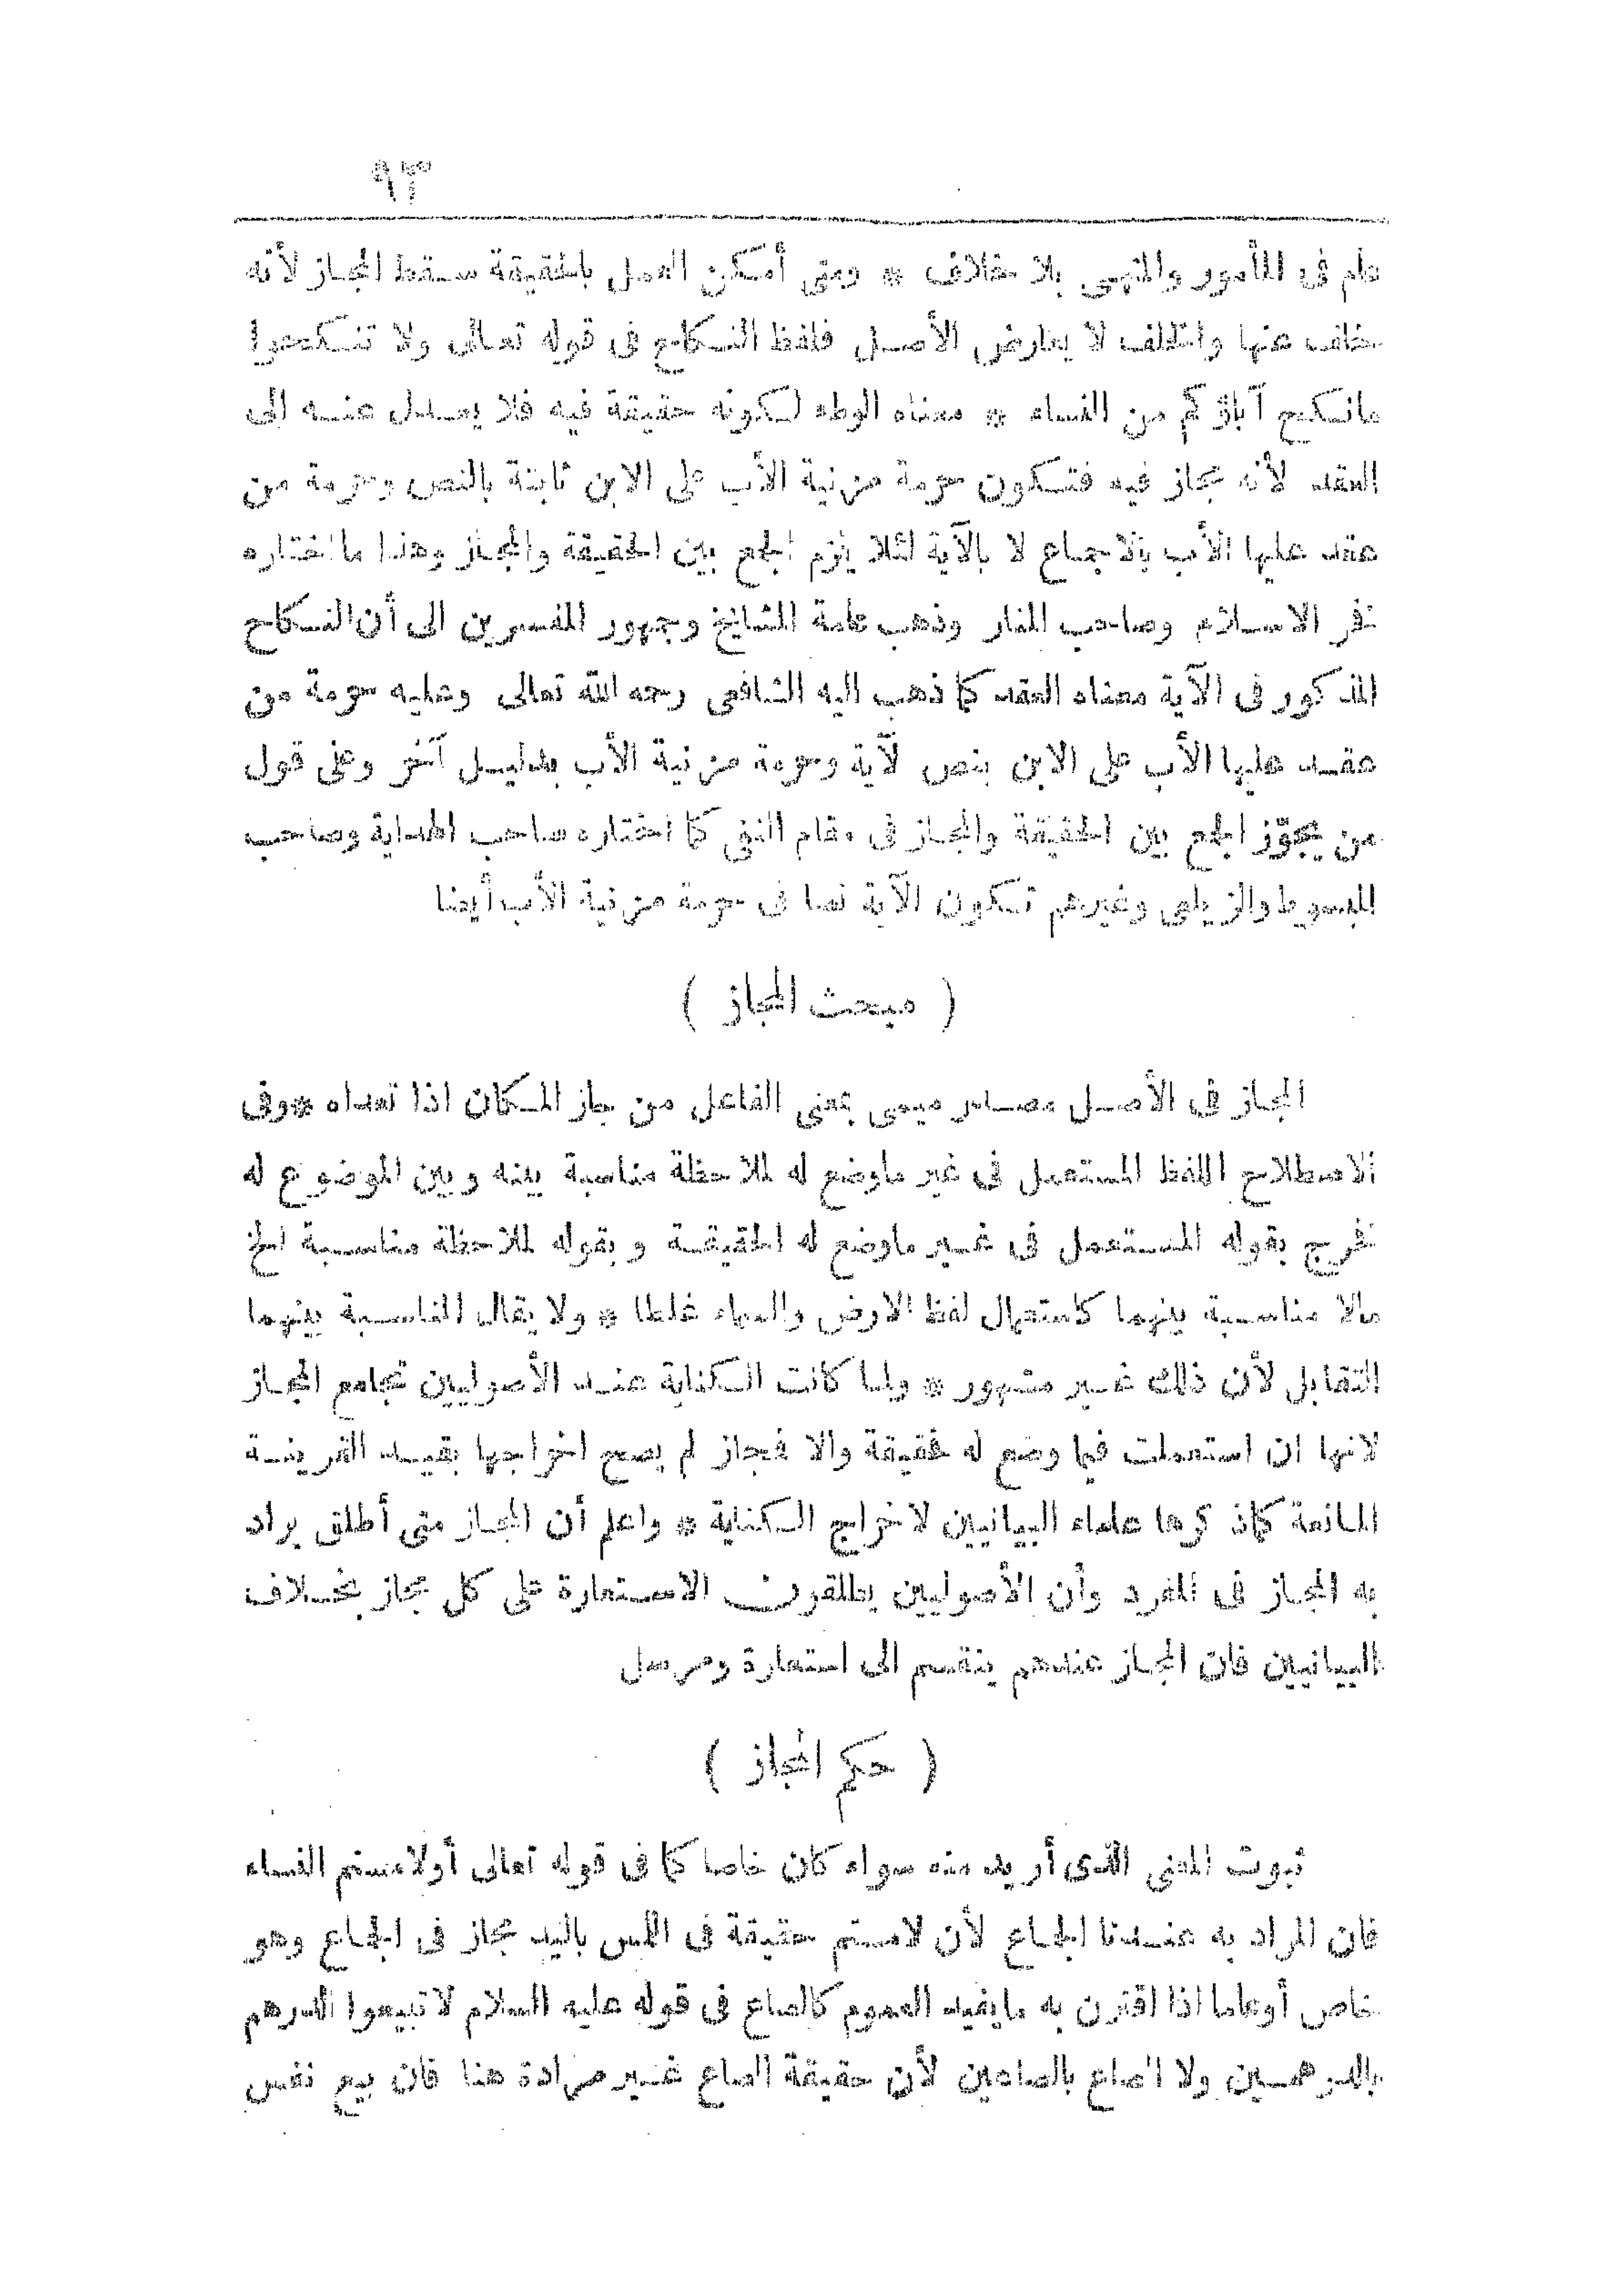 ٩٣
عام فى المأمور والمنهى بلا خلاف * ومتى أمكن العمل بالحقيقة سقط المجاز لأنه
خلف عنها والخلف لا يعارض الأصل فلفظ النكاح فى قوله تعالى ولا تنكحوا
مانكح آباؤكم من النساء * معناه الوطء لكونه حقيقة فيه فلا يعدل عنه الى
العقد لأنه مجاز فيه فتكون حرمة مزنية الأب على الابن ثابتة بالنص وحرمة من
عقد عليها الأب بالاجماع لا بالآية لئلا يلزم الجمع بين الحقيقة والمجاز وهذا ما اختاره
فخر الاسلام وصاحب المنار وذهب عامة المشايخ وجمهور المفسرين الى أن النكاح
المذكور فى الآية معناه العقد كما ذهب اليه الشافعى رحمه الله تعالى وعليه حرمة من
عقد عليها الأب على الابن بنص الآية وحرمة مزنية الأب بدليل آخر وعلى قول
من يجوّز الجمع بين الحقيقة والمجاز فى مقام النفى كما اختاره صاحب الهداية وصاحب
المبسوط والزيلعى وغيرهم تكون الآية نصا فى حرمة مزنية الأب أيضا
( مبحث المجاز )
المجاز فى الأصل مصدر ميمى بمعنى الفاعل من جاز المكان اذا تعداه * وفى
الاصطلاح اللفظ المستعمل فى غير ماوضع له لملاحظة مناسبة بينه وبين الموضوع له
فخرج بقوله المستعمل فى غير ماوضع له الحقيقة وبقوله لملاحظة مناسبة الخ
مالا مناسبة بينهما كاستعمال لفظ الارض والسماء غلطا * ولا يقال المناسبة بينهما
التقابل لأن ذلك غير مشهور * ولما كانت الكناية عند الأصوليين تجامع المجاز
لانها ان استعملت فيما وضع له فحقيقة والا فمجاز لم يصح اخراجها بقيد القرينة
المانعة كما ذكرها علماء البيانيين لاخراج الكناية * واعلم أن المجاز متى أطلق يراد
به المجاز فى المفرد وأن الأصوليين يطلقون الاستعارة على كل مجاز بخلاف
البيانيين فان المجاز عندهم ينقسم الى استعارة ومرسل
( حكم المجاز )
ثبوت المعنى الذى أريد منه سواء كان خاصا كما فى قوله تعالى أولامستم النساء
فان المراد به عندنا الجماع لأن لامستم حقيقة فى المس باليد مجاز فى الجماع وهو
خاص أوعاما اذا اقترن به مايفيد العموم كالصاع فى قوله عليه السلام لاتبيعوا الدرهم
بالدرهمين ولا الصاع بالصاعين لأن حقيقة الصاع غير مرادة هنا فان بيع نفس